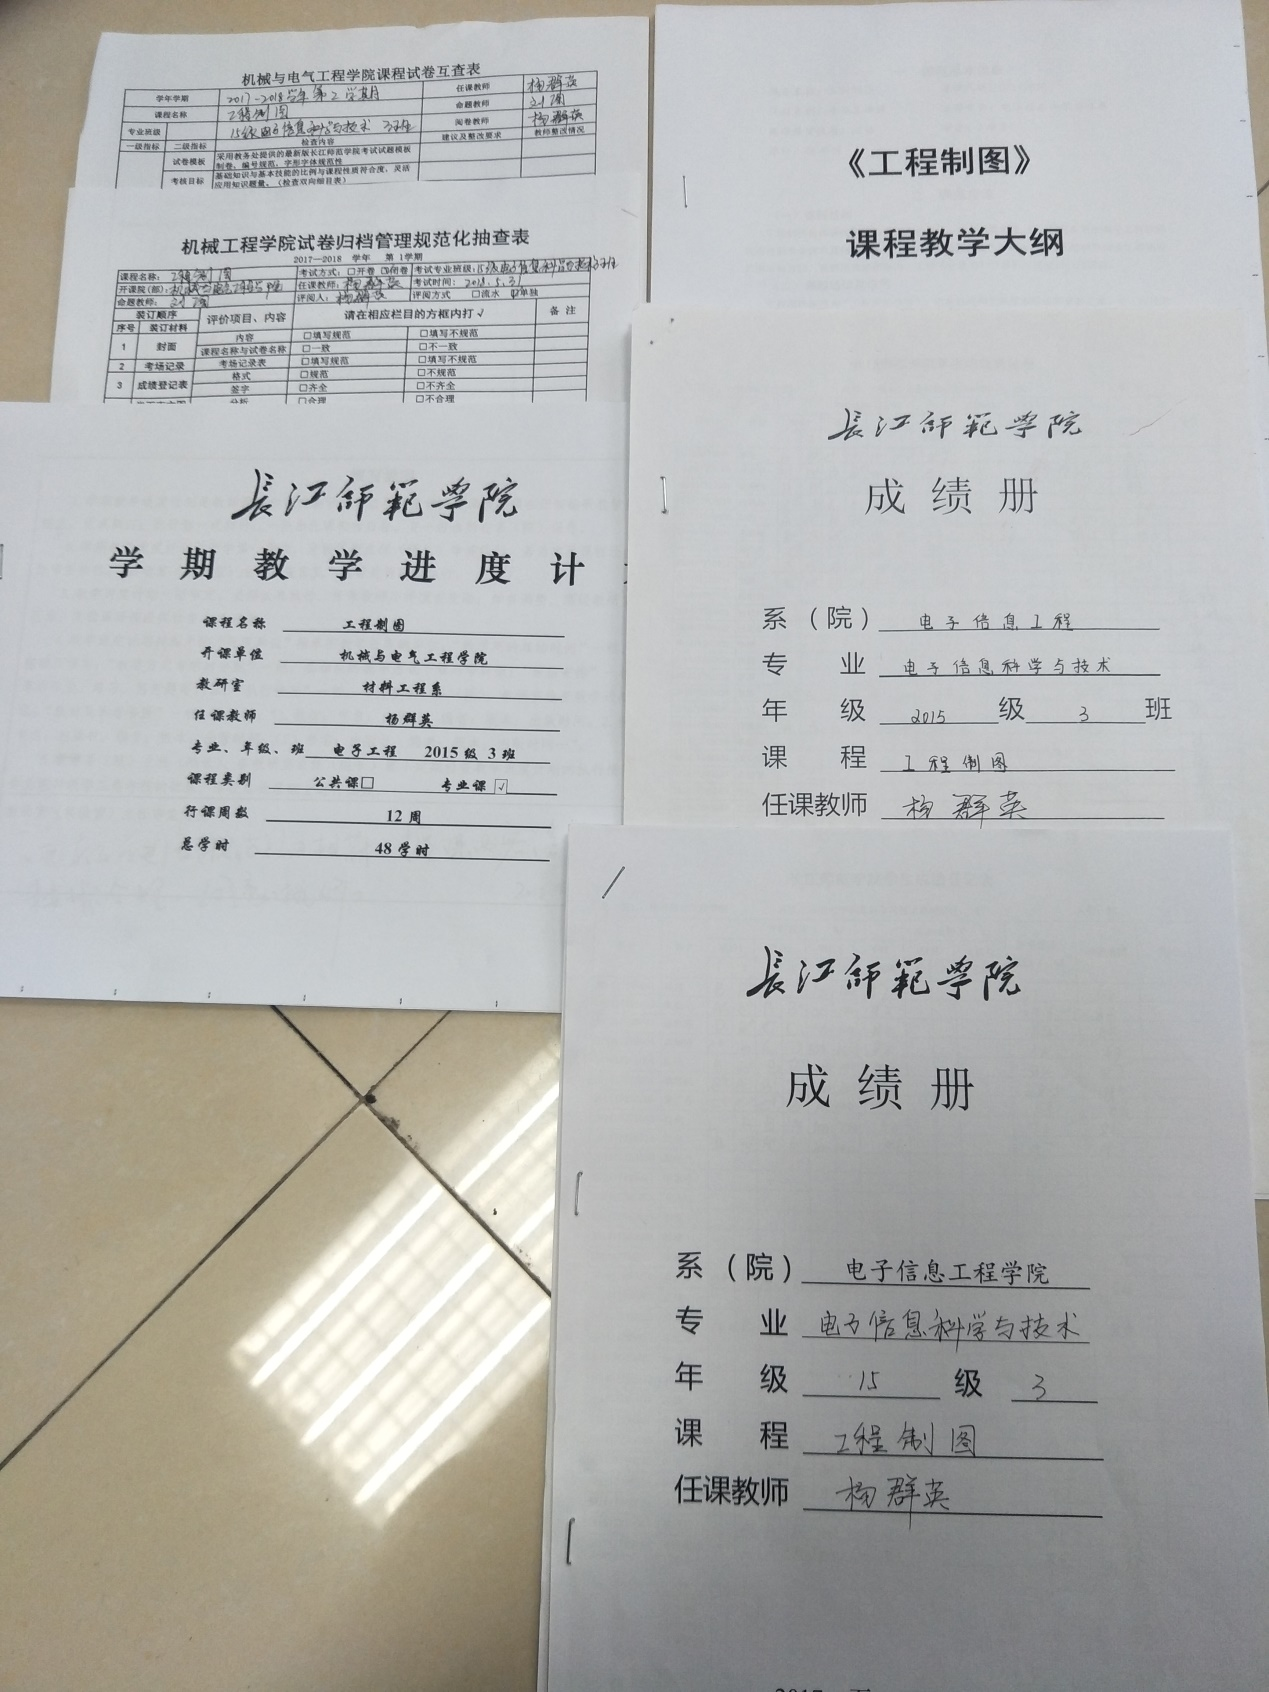 机械与电气工程学院课程试卷互查表
学年学期 2017-2018学年第2学期 任课教师 杨群英
课程名称 工程制图 命题教师 刘阔
专业班级 15级电子信息科学与技术 3班 阅卷教师 杨群英
一级指标 二级指标 检查内容 建议及整改要求 教师整改情况
试卷模板 采用教务处提供的最新版长江师范学院考试试题模板
制卷，编号规范，字形字体规范性
考核目标 基础知识与基本技能的比例与课程性质符合度，灵活
应用知识题量。（检查双向细目表）
机械工程学院试卷归档管理规范化抽查表
2017—2018 学年 第 1学期
课程名称：工程制图 考试方式：□开卷 ☑闭卷 考试专业班级：15级电子信息科学与技术3班
开课院(部)：机械与电气工程学院 任课教师：杨群英 考试时间：2018.5.31
命题教师：刘阔 评阅人：杨群英 评阅方式 □流水 ☑单独
装订顺序 评价项目、内容 请在相应栏目的方框内打√ 备 注
序号 装订材料
1 封面 内容 □填写规范 □填写不规范
课程名称与试卷名称 □一致 □不一致
2 考场记录 考场记录表 □填写规范 □填写不规范
3 成绩登记表 格式 □规范 □不规范
签字 □齐全 □不齐全
分析 □合理 □不合理
長江師範学院
学 期 教 学 进 度 计
课程名称 工程制图
开课单位 机械与电气工程学院
教研室 材料工程系
任课教师 杨群英
专业、年级、班 电子工程 2015 级 3 班
课程类别 公共课□ 专业课☑
行课周数 12 周
总学时 48 学时
《工程制图》
课程教学大纲
長江師範学院
成 绩 册
系（院） 电子信息工程
专 业 电子信息科学与技术
年 级 2015 级 3 班
课 程 工程制图
任课教师 杨群英
長江師範学院
成 绩 册
系（院） 电子信息工程学院
专 业 电子信息科学与技术
年 级 15 级 3
课 程 工程制图
任课教师 杨群英